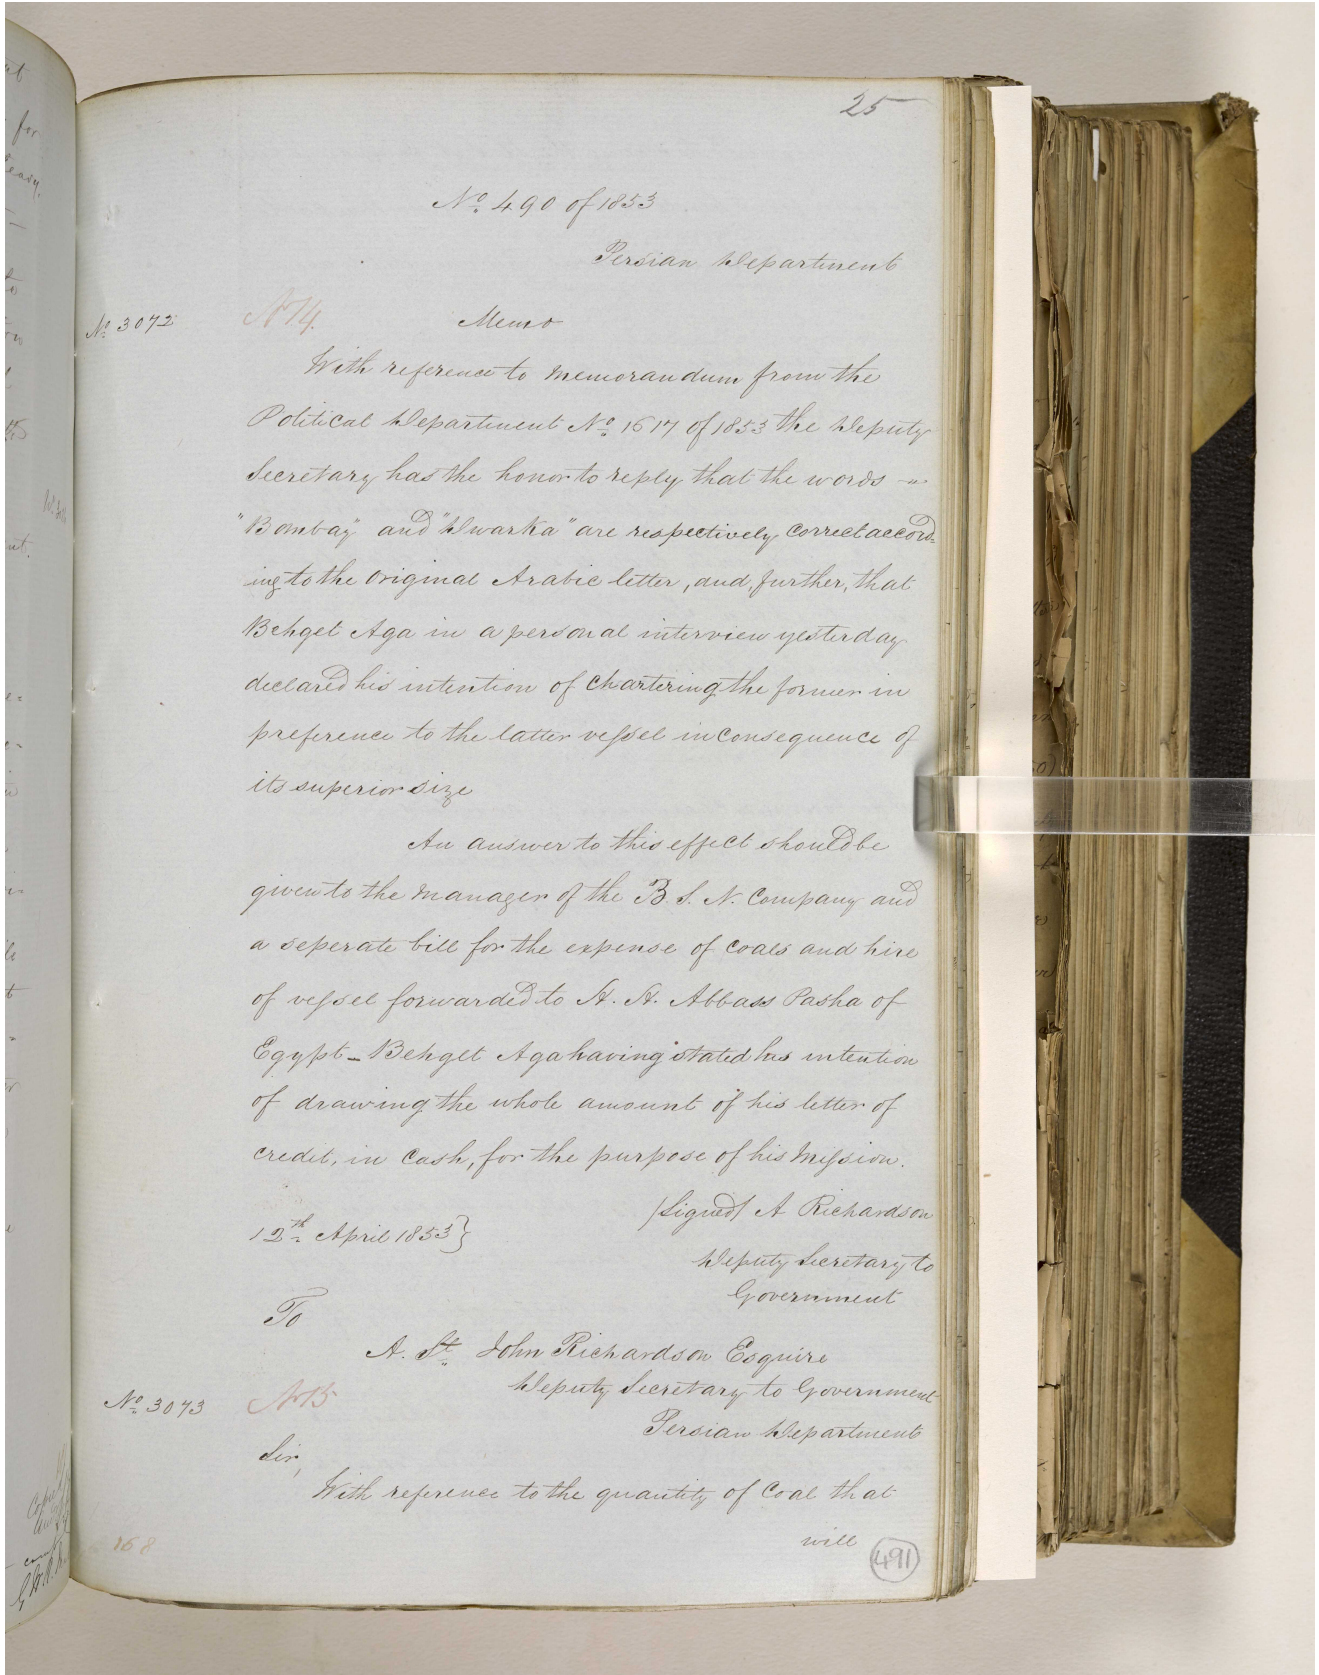 25
No. 490 of 1853
Persian Department
No. 3072
No 14.
Memo
With reference to memorandum from the
Political Department No. 1617 of 1853 the Deputy
Secretary has the honor to reply that the words -"-
"Bombay" and "Dwarka" are respectively correct accord=
ing to the original Arabic letter, and, further, that
Behget Aga in a personal interview yesterday
declared his intention of chartering the former in
preference to the latter vessel in consequence of
its superior size
An answer to this effect should be
given to the manager of the B. S. N. Company and
a seperate bill for the expense of coals and hire
of vessel forwarded to H. H. Abbass Pasha of
Egypt - Behget Aga having stated his intention
of drawing the whole amount of his letter of
credit, in cash, for the purpose of his Mission.
(Signed) A Richardson
12th April 1853}
Deputy Secretary to
Government
To
A. St. John Richardson Esquire
Deputy Secretary to Government
No. 3073
No 15
Persian Department
Sir,
With reference to the quantity of coal that
will
168
491